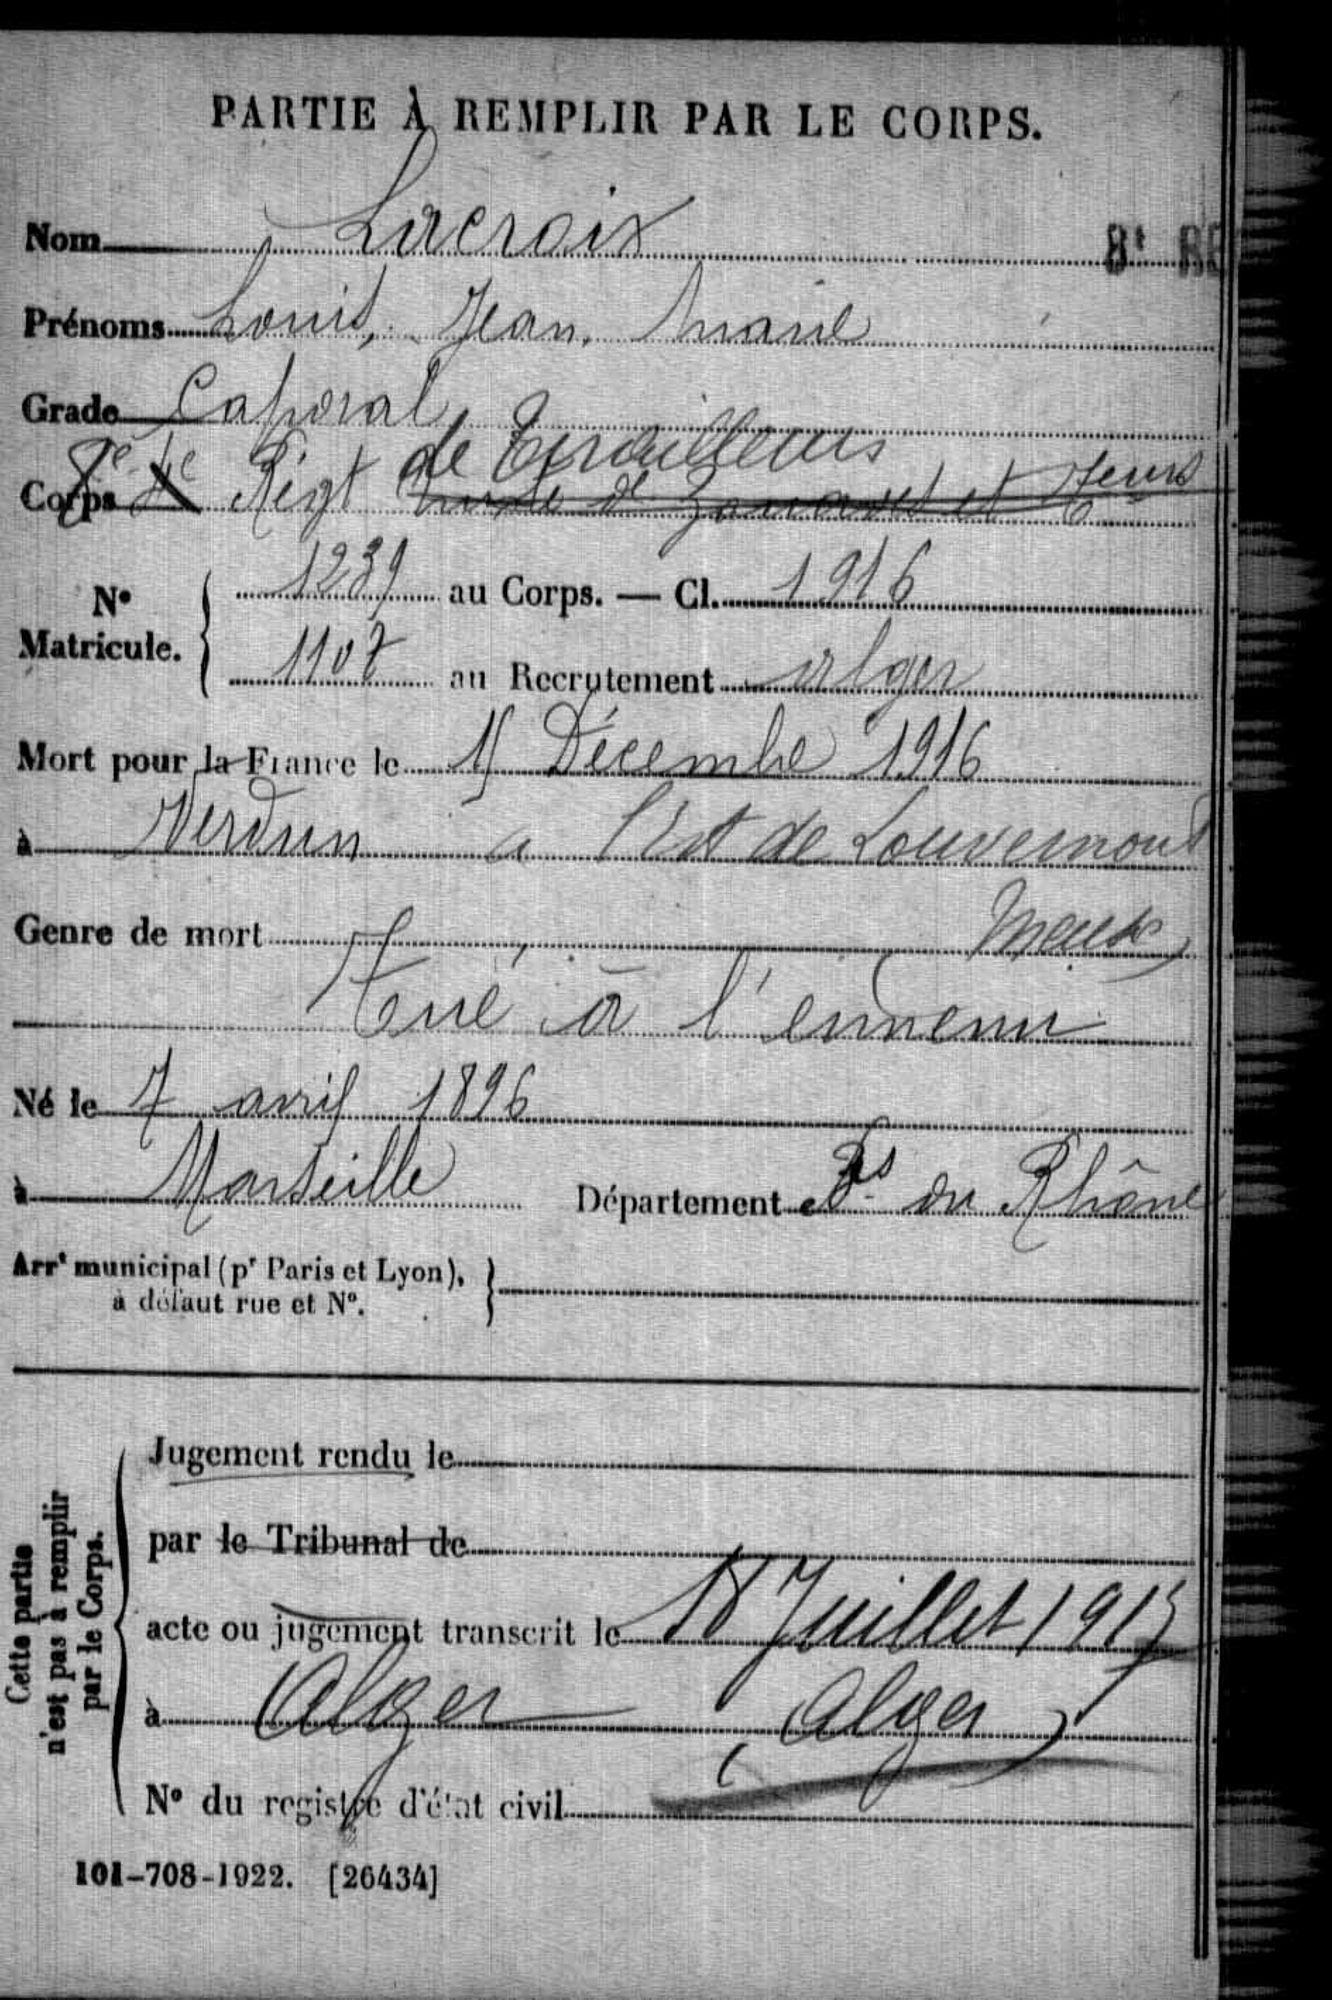 PARTIE À REMPLIR PAR LE CORPS.
Nom Lacroix
8e RE
Prénoms Louis, Jean, Marie
Grade Caporal
de Tirailleurs
Corps 8e 4e Régt mixte de Zouaves et Tteurs
No Matricule. 1239 au Corps. — Cl. 1916
1107 au Recrutement Alger
Mort pour la France le 15 Décembre 1916
à Verdun a l'Est de Louvemont
Genre de mort Meuse
Tué à l'ennemi
Né le 7 avril 1896
à Marseille Département Bs du Rhône
Arrt municipal (pr Paris et Lyon),
à défaut rue et No.
Cette partie
n'est pas à remplir
par le Corps.
Jugement rendu le
par le Tribunal de
acte ou jugement transcrit le 18 Juillet 1917
à Alger (Alger)
No du registre d'état civil
101-708-1922. [26434]